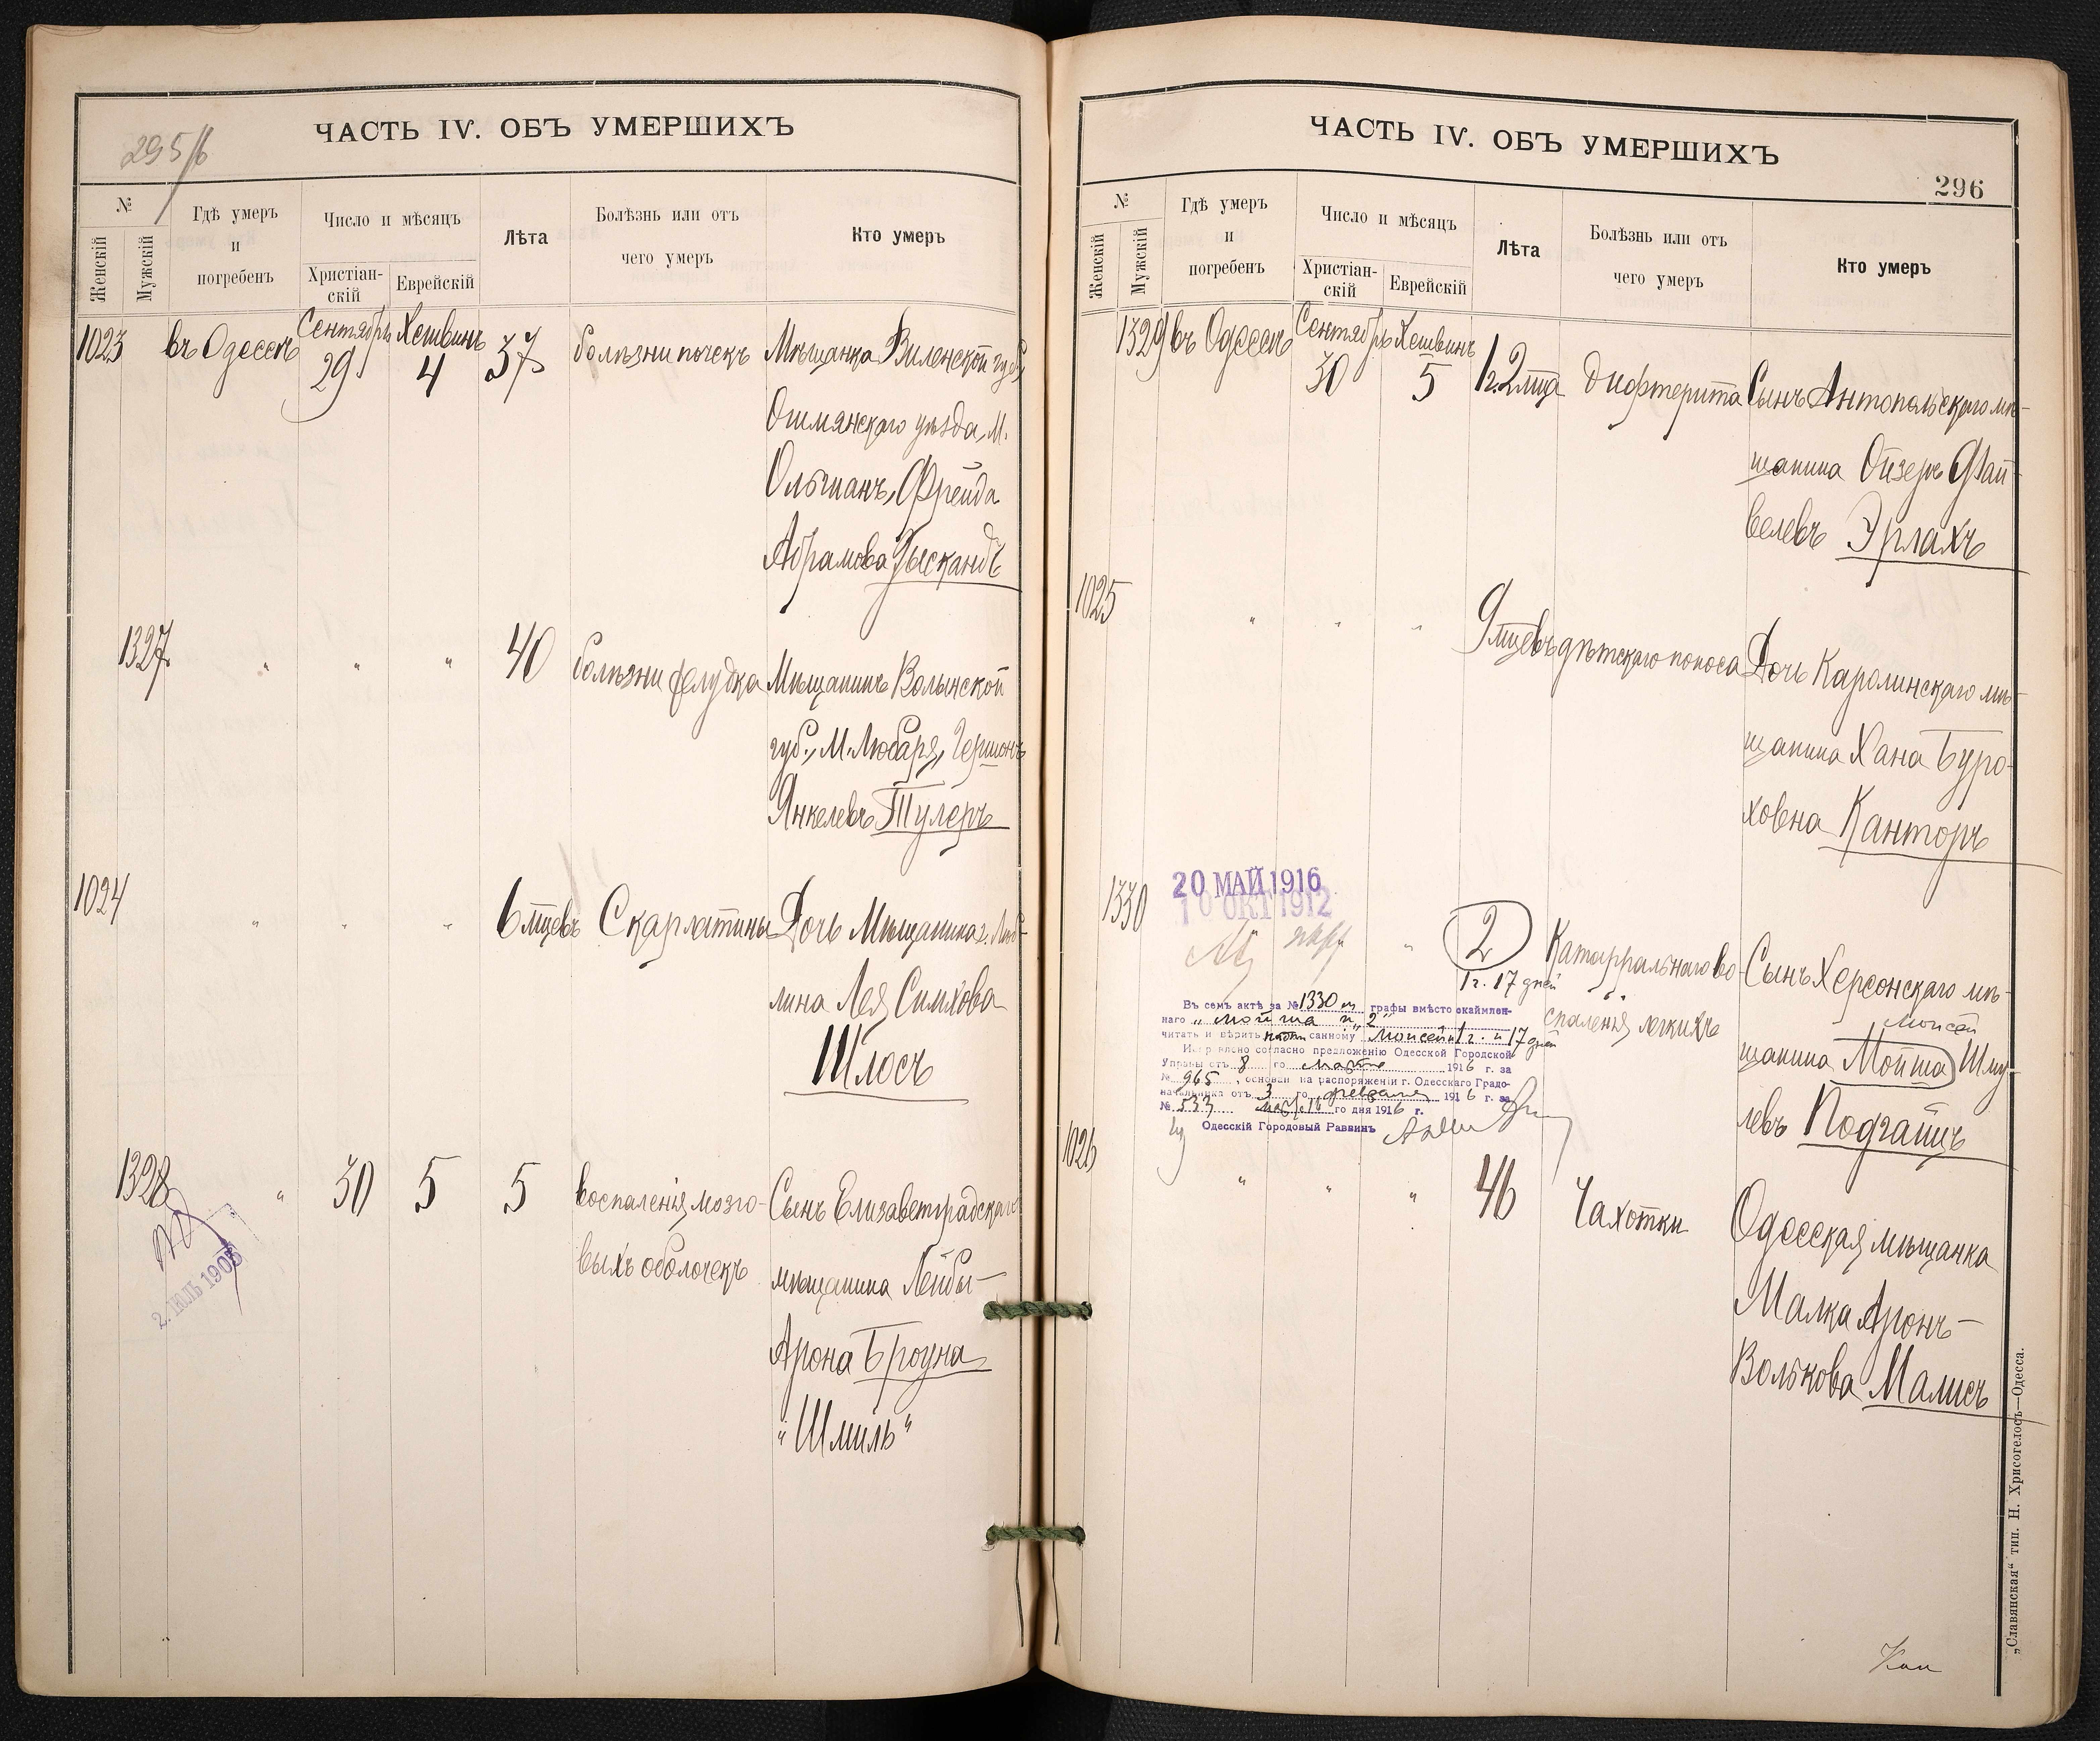 295/б
ЧАСТЬ IV. ОБЪ УМЕРШИХЪ
№
Женскій
Мужскій
Гдѣ умеръ
и
погребенъ
Число и мѣсяцъ
Христіан-
скій
Еврейскій
Лѣта
Болѣзнь или отъ
чего умеръ
Кто умеръ
1023 въ Одессѣ Сентябрь 29 Хешвинъ 4 37 болѣзни почекъ Мѣщанка Виленской губ.,
Ошмянскаго уѣзда, М.
Ольшанъ, Фрейда
Абрамова
1327 " " " 40 болѣзни желудка Мѣщанинъ Волынской
губ., М. Любаря, Гершонъ
Янкелевъ Тулеръ
1024 " " " 6 мцевъ Скарлатины Дочь Мѣщанина г. Люб-
лина Лея Симхова
Шлосъ
1328 " 30 5 5 воспаленія мозго- Сынъ Елизаветградскаго
выхъ оболочекъ мѣщанина Лейбы-
Арона Броуна
"Шмиль"
2. ІЮЛЬ 1905
ЧАСТЬ IV. ОБЪ УМЕРШИХЪ
296
№
Женскій
Мужскій
Гдѣ умеръ
и
погребенъ
Число и мѣсяцъ
Христіан-
скій
Еврейскій
Лѣта
Болѣзнь или отъ
чего умеръ
Кто умеръ
1329 въ Одессѣ Сентябрь 30 Хешвинъ 5 1 г. 2 мца дифтерита Сынъ Антопольскаго мѣ-
щанина Ойзеръ Фай-
велевъ Эрлахъ
1025 " " " 9 мцевъ дѣтскаго поноса Дочь Каролинскаго мѣ-
щанина Хана Буро-
ховна Канторъ
20 МАЙ 1916
10 ОКТ 1912
1330 " 2 Катарральнаго во- Сынъ Херсонскаго мѣ-
1 г. 17 дней
спаленія легкихъ
Моисей
щанина Мойша Шму-
левъ Подгаицъ
Въ семъ актѣ за № 1330 м графы вмѣсто окаймлен-
наго „Мойша и 2"
читать и вѣрить надписанному „Моисей и 1 г. и 17 дней
Исправлено согласно предложенію Одесской Городской
Управы отъ 8 го марта 1916 г. за
№ 965, основан на распоряженіи г. Одесскаго Градо-
начальника отъ 3 го февраля 1916 г. за
№ 533 го дня 1916 г.
Одесскій Городовый Раввинъ
1026 " " " 46 Чахотки Одесская мѣщанка
Малка Аронъ-
Волькова Малисъ
„Славянская" тип. Н. Хрисогелосъ—Одесса.